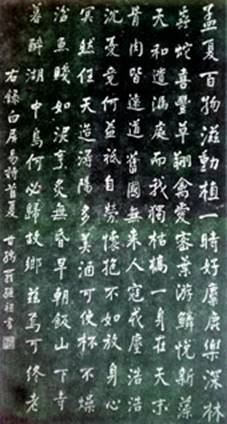 孟夏百物滋動植一時好麋鹿樂深林
蟲蛇喜豐草翔禽愛密葉游鱗悅新藻
天和遺漏處而我獨枯槁一身在天末
骨肉皆遠道舊國無來人寇戎塵浩浩
沉憂竟何益祇自勞懷抱不如放身心
冥然任天造潯陽多美酒可使杯不燥
湓魚賤如泥烹炙無昏早朝飯山下寺
暮醉湖中島何必歸故鄉茲焉可終老
右錄白居易詩首夏